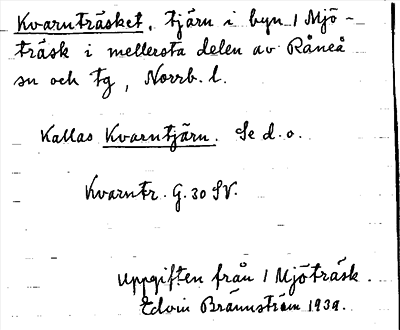 Kvarnträsket, tjärn i byn 1 Mjö-
träsk i mellersta delen av Råneå
sn och tg, Norrb. l.
Kallas Kvarntjärn. Se d.o.
Kvarntr. G. 30 SV.
Uppgiften från 1 Mjöträsk.
Edvin Brännström 1939.